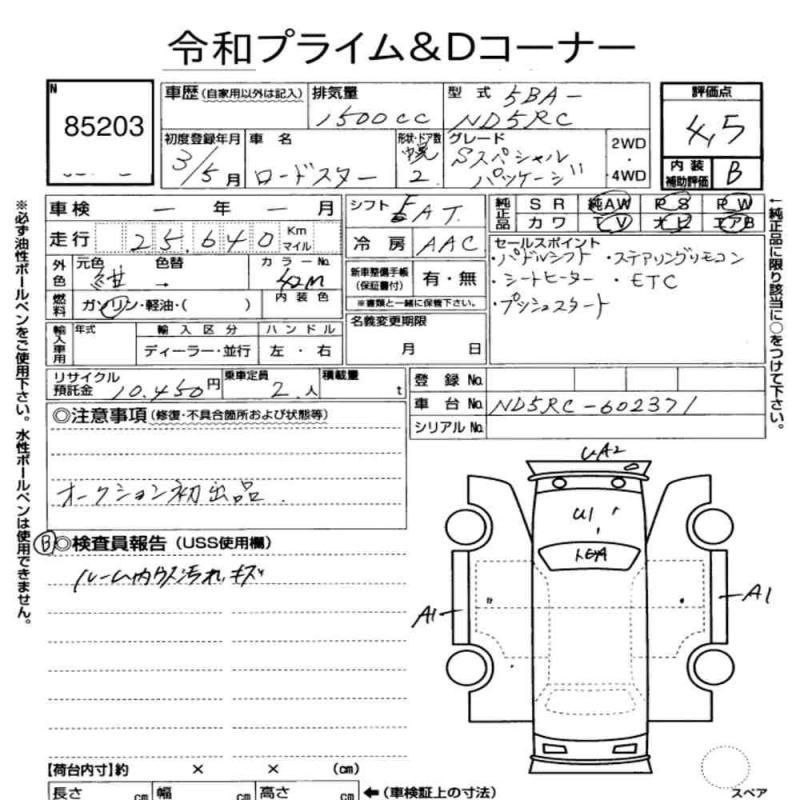 令和プライム＆Dコーナー
N
85203
車歴（自家用以外は記入） 排気量 型式 評価点
1500cc 5BA-
ND5RC
4.5
初度登録年月 車名 形状・ドア数 グレード 2WD・4WD
3/5月 ロードスター 幌 2 Sスペシャル
パッケージ
内装補助評価 B
車検 － 年 － 月
シフト AT
純正品 SR 純AW PS PW
カワ TV ナビ エアB
走行 25,640 Km マイル
冷房 AAC
セールスポイント
・パドルシフト ・ステアリングリモコン
・シートヒーター ・ETC
・プッシュスタート
外色 元色 色替 カラーNo.
紺 → 42M
新車整備手帳（保証書付） 有・無
※書類と一緒に保管下さい。
燃料 ガソリン・軽油・（ ） 内装色
名義変更期限
月 日
輸入車用 年式 輸入区分 ハンドル
ディーラー・並行 左・右
リサイクル預託金 10,450円 乗車定員 2人 積載量 t
登録No.
車台No. ND5RC-602371
シリアルNo.
◎注意事項（修復・不具合箇所および状態等）
オークション初出品.
B ◎検査員報告（USS使用欄）
ルーム内ウス汚れキズ
UA2
U1
A1
A1
【荷台内寸】約 × × （cm）
長さ cm 幅 cm 高さ cm ←（車検証上の寸法）
スペア
※必ず油性ボールペンをご使用下さい。水性ボールペンは使用できません。
←純正品に限り該当に○をつけて下さい。